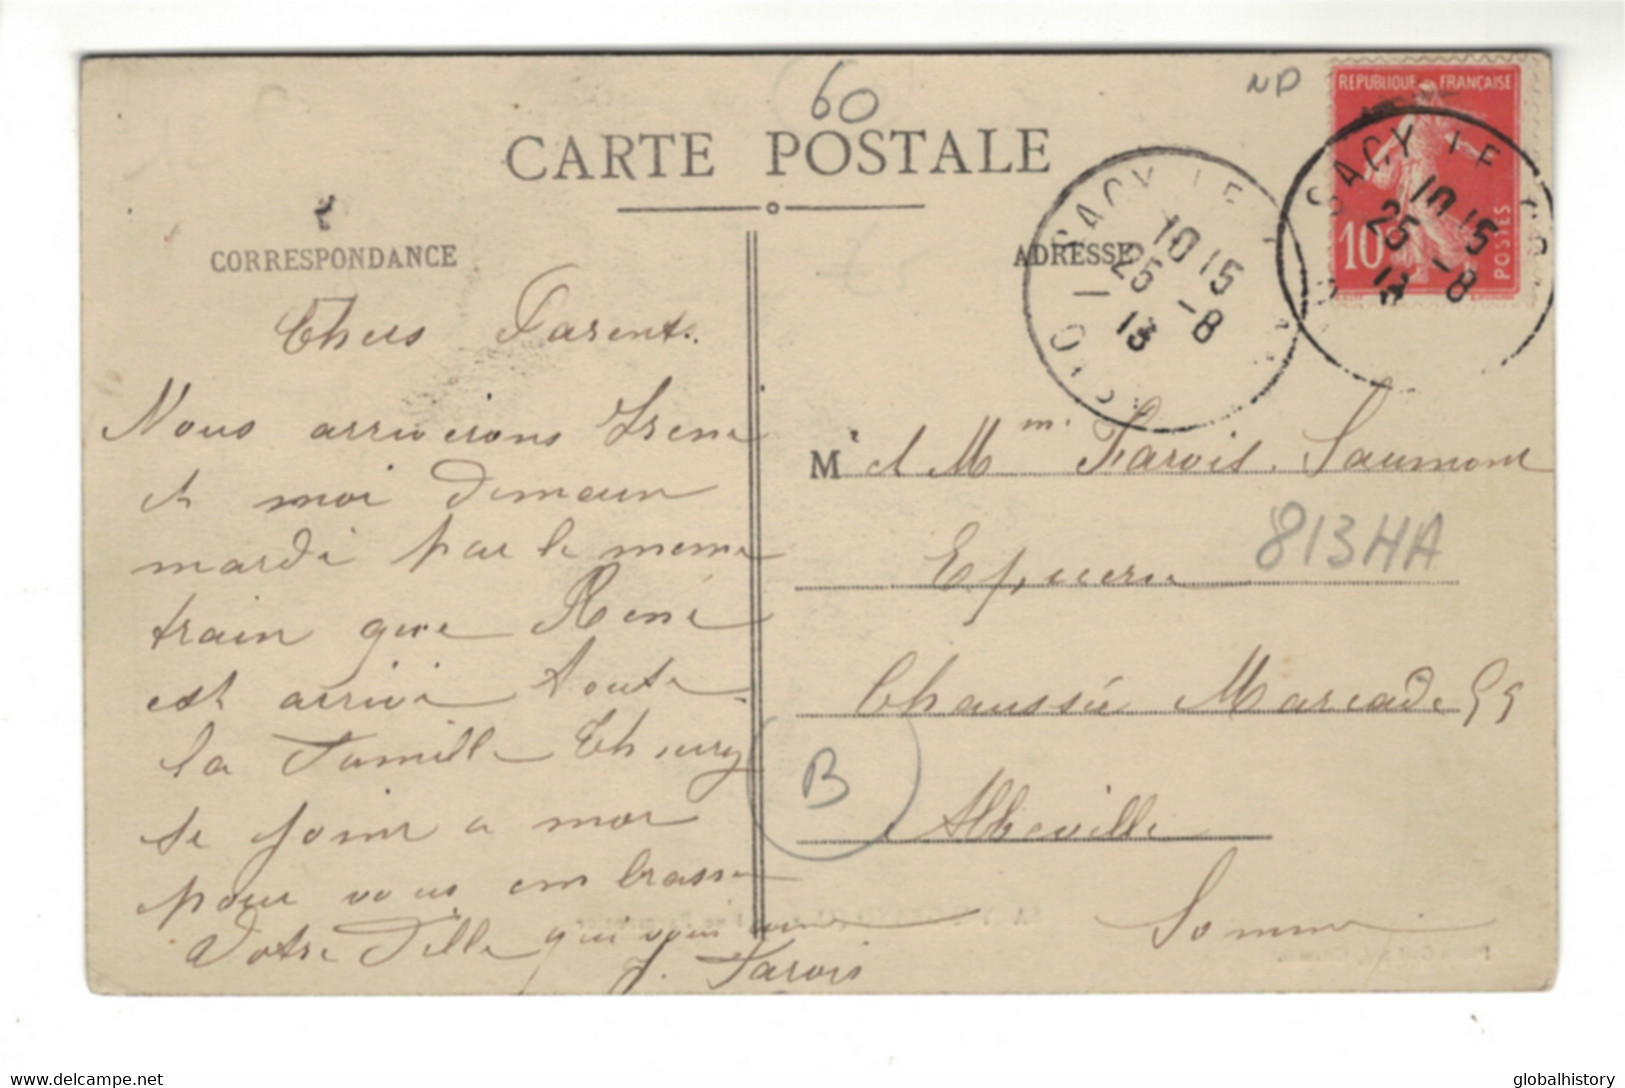 60
ND
CARTE POSTALE
REPUBLIQUE FRANÇAISE
10
POSTES
SACY LE
10 15
25 - 8
13
OISE
SACY LE GR
10 15
25 - 8
13
CORRESPONDANCE
ADRESSE
Chers Parents
Nous arriverons Irene
et moi demain
mardi par le meme
train que René
est arrivé toute
la Famille Thieury
se joint a moi
pour vous embrasse
Votre Fille qui vous aime
J. Farvis
M r et M m. Farvis. Saumont
Epicerie
813HA
Chaussée Marcadé 99
B
Abbeville
Somme
delcampe.net
globalhistory